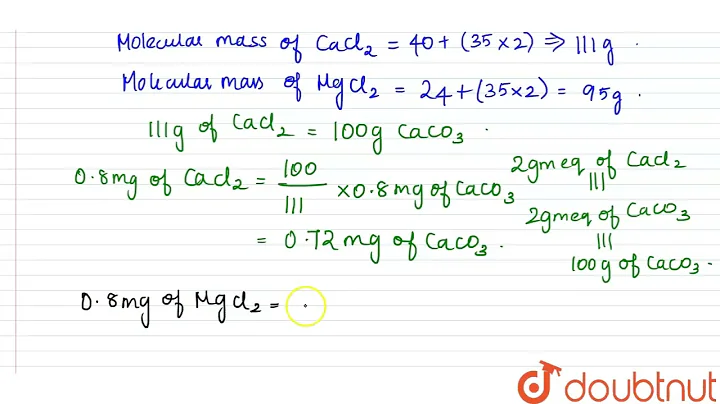 Molecular mass of CaCl₂ = 40 + (35×2) ⇒ 111g.
Molecular mass of MgCl₂ = 24+(35×2) = 95g.
111g of CaCl₂ = 100g CaCO₃.
0.8mg of CaCl₂ = 100/111 ×0.8mg of CaCO₃
= 0.72 mg of CaCO₃.
2gmeq of CaCl₂
|||
2gmeq of CaCO₃
|||
100g of CaCO₃.
0.8mg of MgCl₂ = .
doubtnut